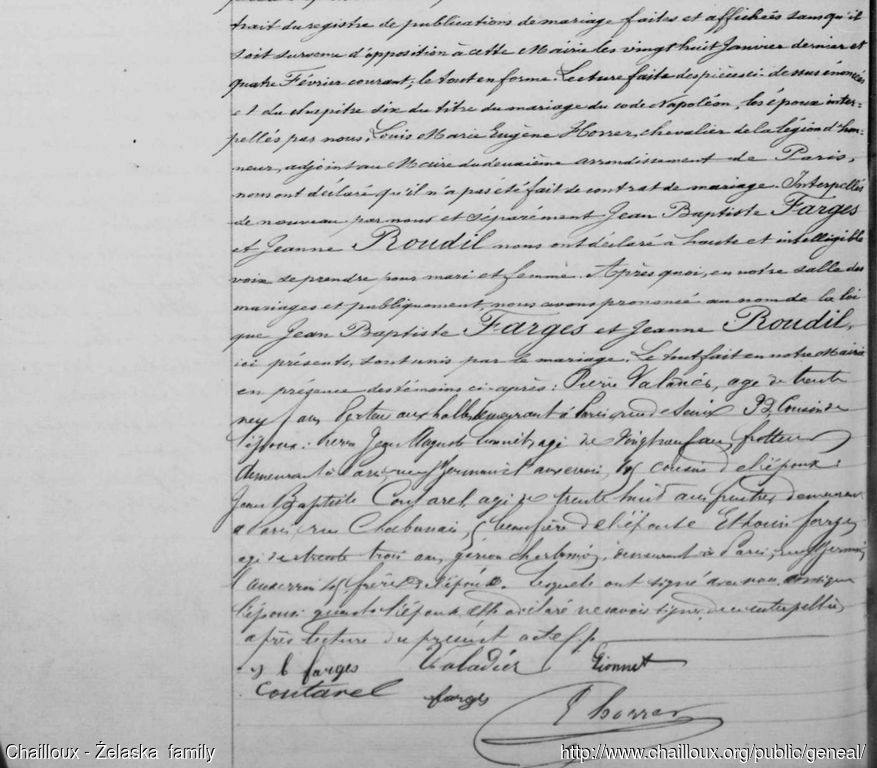 trait du registre de publications de mariage faites et affichées sans qu'il
soit survenu d'opposition à cette Mairie les vingt huit Janvier dernier et
quatre Février courant; le tout en forme. Lecture faite des pièces ci-dessus énoncées
et du chapitre six du titre du mariage du code Napoléon, les époux inter-
pellés par nous, Louis Marie Eugène Horrer, chevalier de la légion d'hon-
neur, adjoint au Maire du deuxième arrondissement de Paris,
nous ont déclaré qu'il n'a pas été fait de contrat de mariage. Interpellés
de nouveau par nous et séparément Jean Baptiste Farges
et Jeanne Roudil nous ont déclaré à haute et intelligible
voix se prendre pour mari et femme. Après quoi, en notre salle des
mariages et publiquement, nous avons prononcé au nom de la loi
que Jean Baptiste Farges et Jeanne Roudil,
ici présents, sont unis par le mariage. Le tout fait en notre Mairie
en présence des témoins ci-après: Pierre Valadiér, agé de trente
neuf ans, aux halles demeurant à Paris, rue de 32 Cousin de
l'époux. Jean agé de vingt neuf ans frotteur
demeurant à Paris, rue St Germain l'auxerrois, cousin de l'époux:
Jean Baptiste Coutarel, agé de trente huit ans, demeurant
à Paris, rue Chabanais 5 beau frère de l'épouse Et Louis farges
agé de trente trois ans, garçon charbonnier, demeurant à Paris, rue St Germain
l'auxerrois frère de l'époux. Lesquels ont signé avec nous, ainsi que
l'époux; quant à l'épouse, elle a déclaré ne savoir signer, de ce interpellée
après lecture du présent acte
J b farges Valadiér Lionnet
Coutarel farges
Horrer
Chailloux - Želaska family
http://www.chailloux.org/public/geneal/